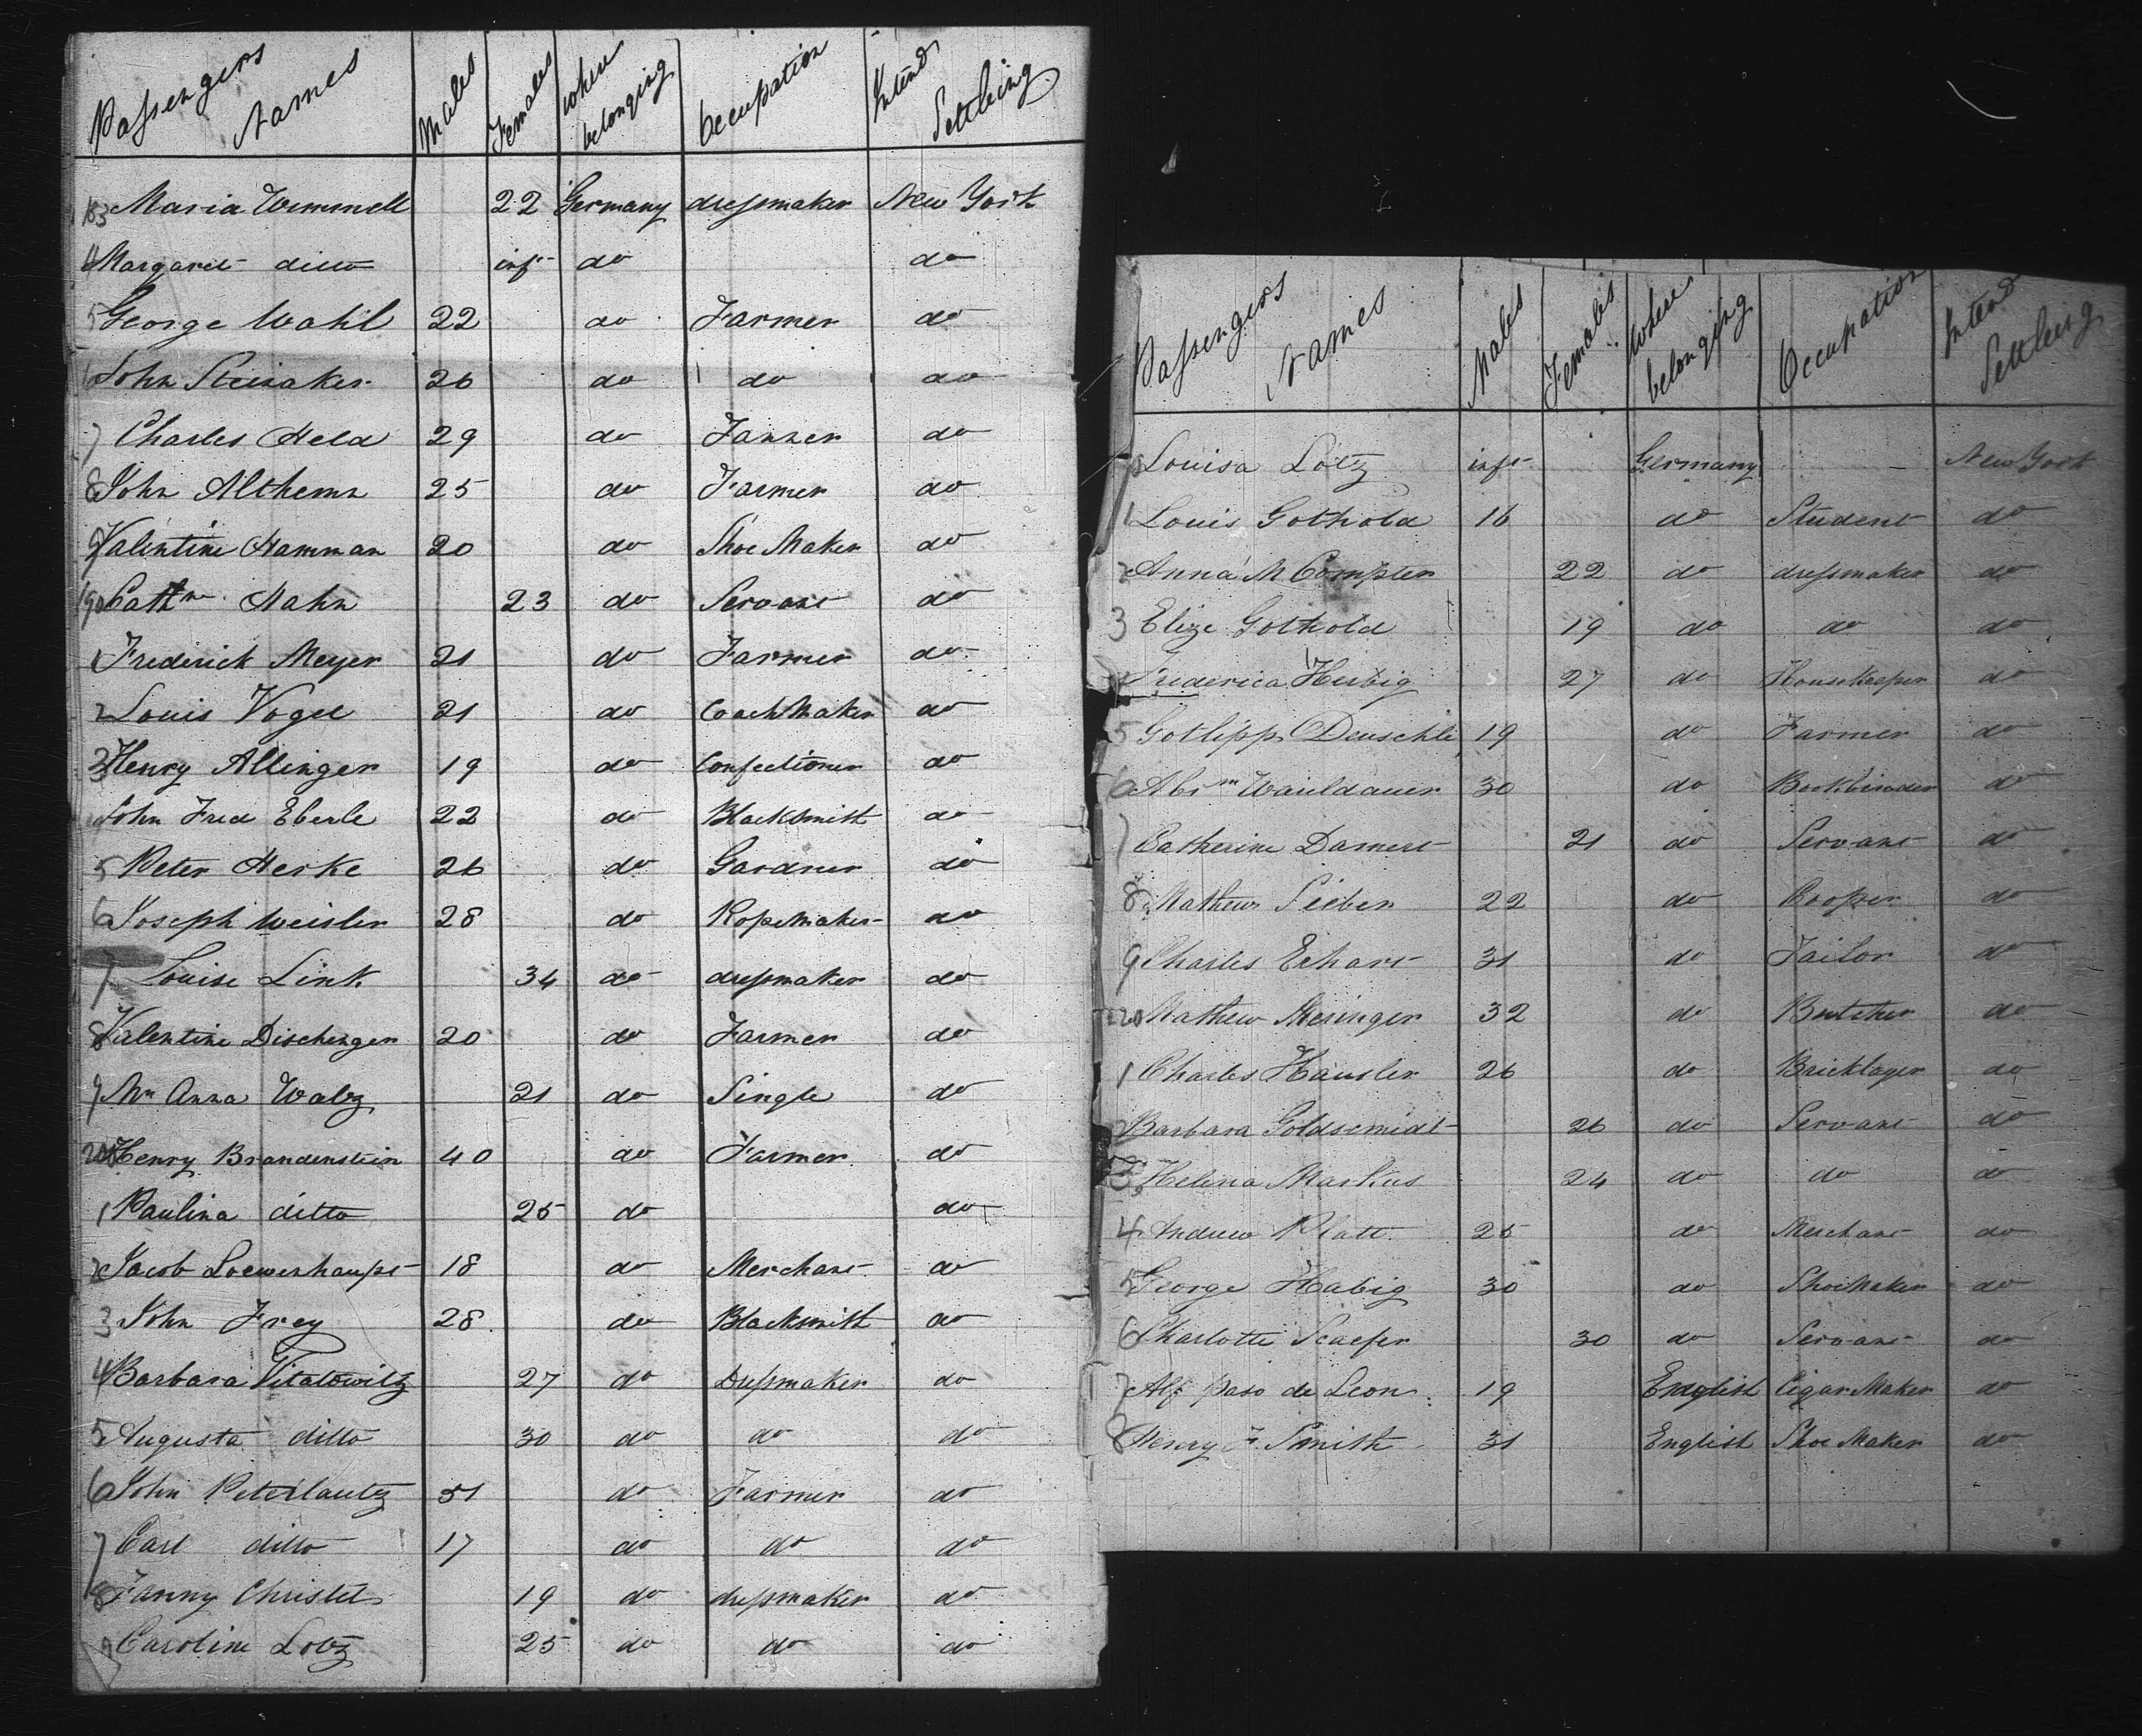 Passengers Names Males Females where belonging Occupation Intend Settleing
183 Maria Wemmell 22 Germany dressmaker New York
4 Margaret ditto inft do do
5 George Wahl 22 do Farmer do
6 John Steinaker 26 do do do
7 Charles Held 29 do Tanner do
8 John Althemn 25 do Farmer do
9 Valentine Hamman 20 do Shoe Maker do
190 Cathne Hahn 23 do Servant do
1 Frederick Meyer 21 do Farmer do
2 Louis Vogel 21 do Coach Maker do
3 Henry Allinger 19 do Confectioner do
4 John Fred Eberle 22 do Blacksmith do
5 Peter Herke 26 do Gardner do
6 Joseph Weisler 28 do Ropemaker do
7 Louise Link 34 do dressmaker do
8 Valentine Dischenger 20 do Farmer do
9 Mn Anna Walz 21 do Single do
200 Henry Brandenstein 40 do Farmer do
1 Paulina ditto 25 do do
2 Jacob Loewenhaupt 18 do Merchant do
3 John Frey 28 do Blacksmith do
4 Barbara Titalowitz 27 do Dressmaker do
5 Augusta ditto 30 do do do
6 John Peterlautz 51 do Farmer do
7 Carl ditto 17 do do do
8 Fanny Christel 19 do dressmaker do
9 Caroline Lotz 25 do do do
Passengers Names Males Females Where belonging Occupation Intend Settleing
Louisa Lotz inft Germany New York
1 Louis Gothold 16 do Student do
2 Anna M Compter 22 do dressmaker do
3 Elize Gothold 19 do do do
4 Frederica Helbig 27 do Housekeeper do
5 Gotlipp Deuschle 19 do Farmer do
6 Abrm Wauldauer 30 do Bookbinder do
7 Catherine Damert 21 do Servant do
8 Mathew Sieber 22 do Cooper do
9 Charles Echart 31 do Tailor do
220 Mathew Meringer 32 do Butcher do
1 Charles Hausler 26 do Bricklayer do
2 Barbara Goldscmidt 26 do Servant do
3 Helena Markus 24 do do do
4 Andrew Platt 25 do Merchant do
5 George Habig 30 do Shoe Maker do
6 Charlotte Scaefer 30 do Servant do
7 Alf Paso de Leon 19 English Cigar Maker do
8 Henry F. Smith 31 English Shoe Maker do